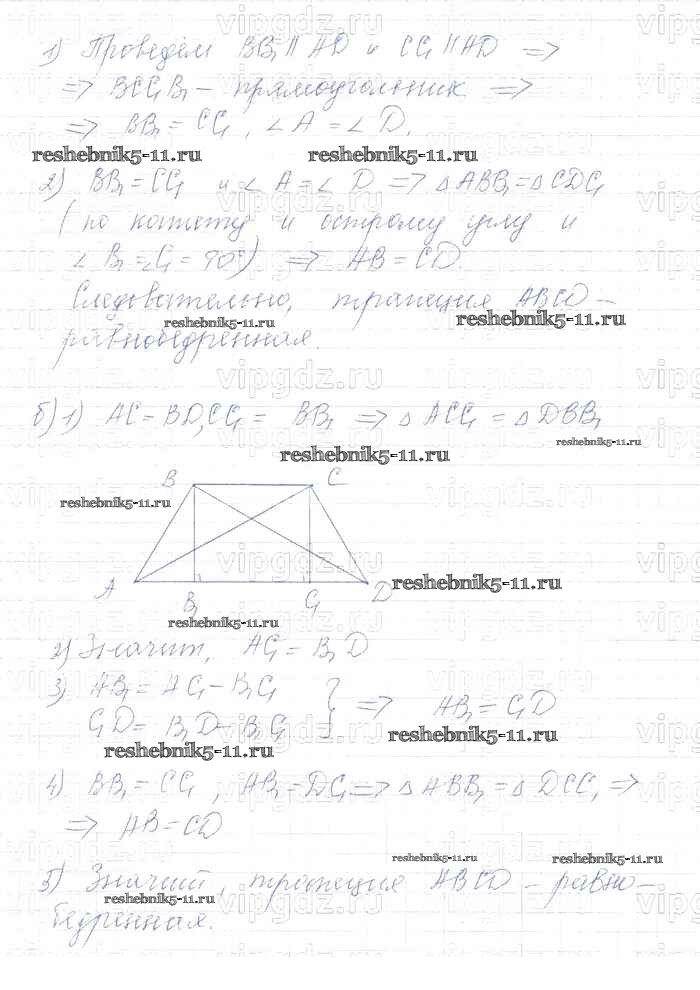 1) Проведём BB₁ || AD и CC₁ || AD =>
=> BCC₁B₁ – прямоугольник =>
=> BB₁ = CC₁, ∠A = ∠D.
reshebnik5-11.ru reshebnik5-11.ru
2) BB₁ = CC₁ и ∠A = ∠D => △ABB₁ = △CDC₁
(по катету и острому углу и
∠B₁ = ∠C₁ = 90°) => AB = CD.
Следовательно, трапеция ABCD –
reshebnik5-11.ru reshebnik5-11.ru
равнобедренная.
vipgdz.ru vipgdz.ru vipgdz.ru
б) 1) AC = BD, CC₁ = BB₁ => △ACC₁ = △DBB₁
reshebnik5-11.ru
reshebnik5-11.ru
B C
reshebnik5-11.ru
A B₁ C₁ D
reshebnik5-11.ru
reshebnik5-11.ru
2) Значит, AC₁ = B₁D
3) AB₁ = AC₁ – B₁C₁
C₁D = B₁D – B₁C₁ } => AB₁ = C₁D
reshebnik5-11.ru reshebnik5-11.ru
4) BB₁ = CC₁, AB₁ = DC₁ => △ABB₁ = △DCC₁ =>
=> AB = CD
reshebnik5-11.ru reshebnik5-11.ru
5) Значит, трапеция ABCD – равно-
reshebnik5-11.ru
бедренная.